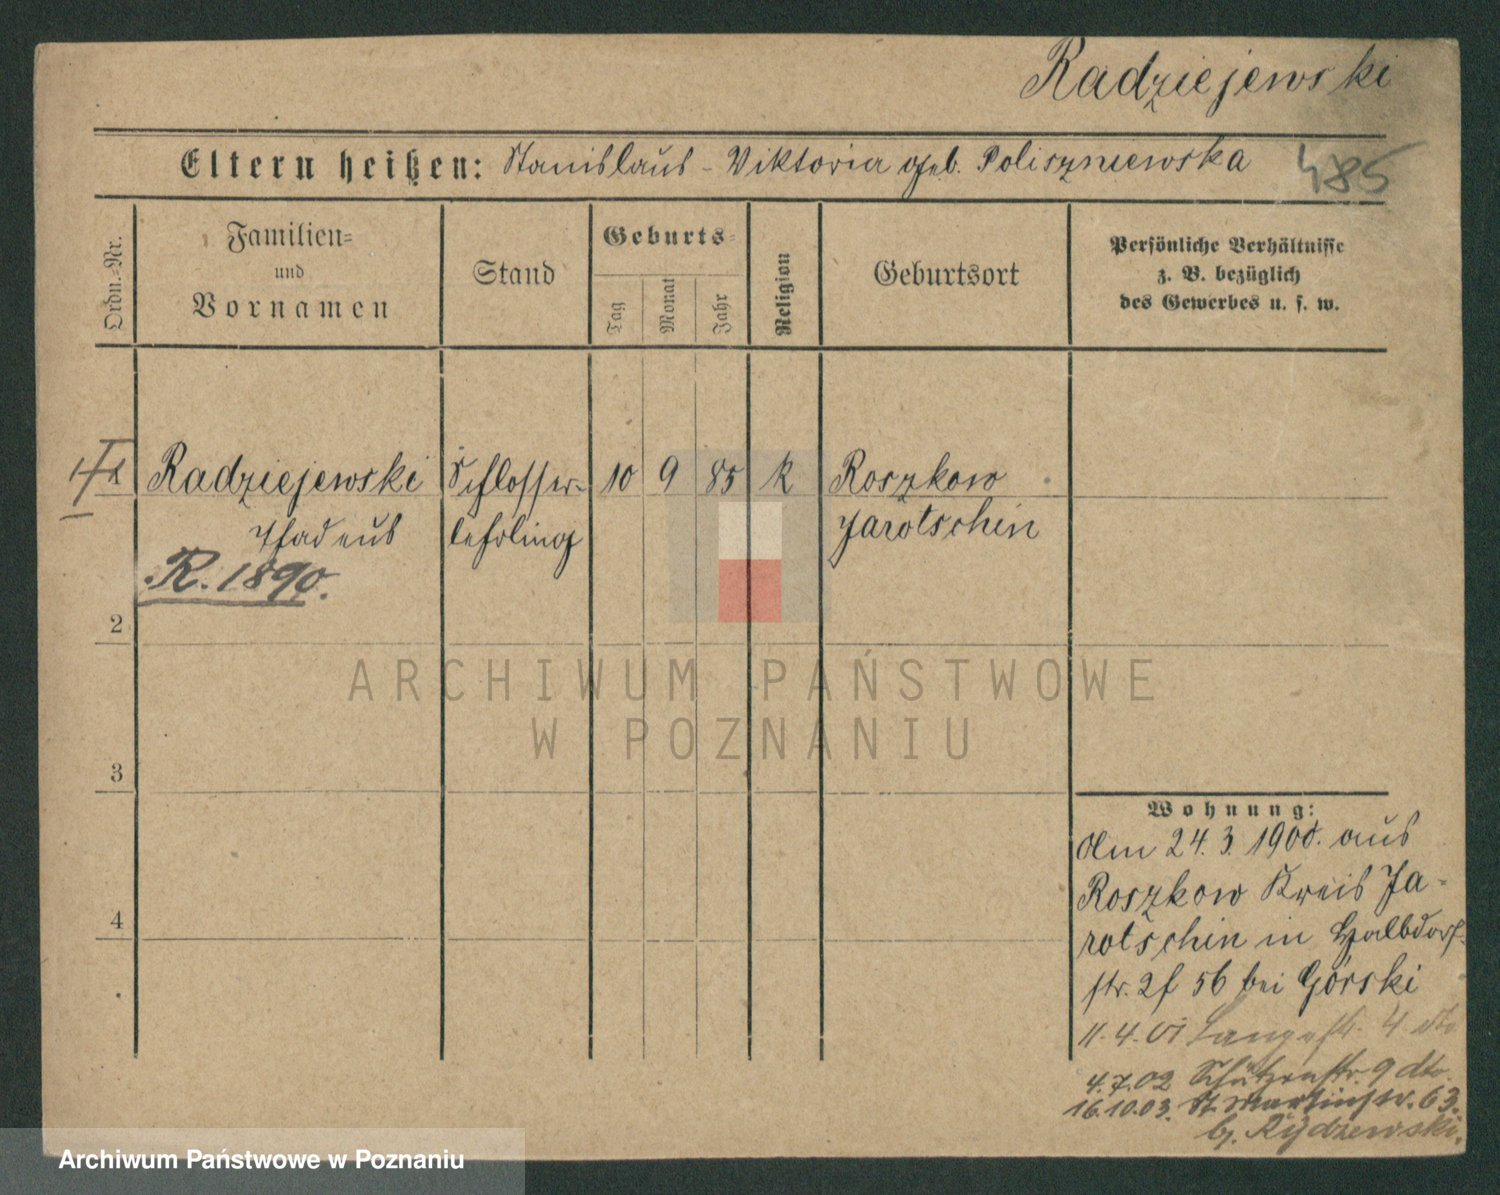 Radziejewski
Eltern heißen: Stanislaus - Viktoria geb. Poliszniewska 485
Ordn.-Nr.
Familien-
und
Vornamen
Stand
Geburts-
Tag
Monat
Jahr
Religion
Geburtsort
Persönliche Verhältnisse
z. B. bezüglich
des Gewerbes u. s. w.
1 Radziejewski Schlosser- 10 9 85 k Roszkow
Thadeus lehrling Jarotschin
R. 1890.
2
3
4
Wohnung:
Am 24. 3. 1900. aus
Roszkow Kreis Ja-
rotschin in Halbdorf-
str. 2f 56 bei Górski
11.4.01 Langestr. 4 dto
4.7.02 Schützenstr. 9 dto.
16.10.03. St. Martinstr. 63.
b. Rydzewski.
ARCHIWUM PAŃSTWOWE
W POZNANIU
Archiwum Państwowe w Poznaniu